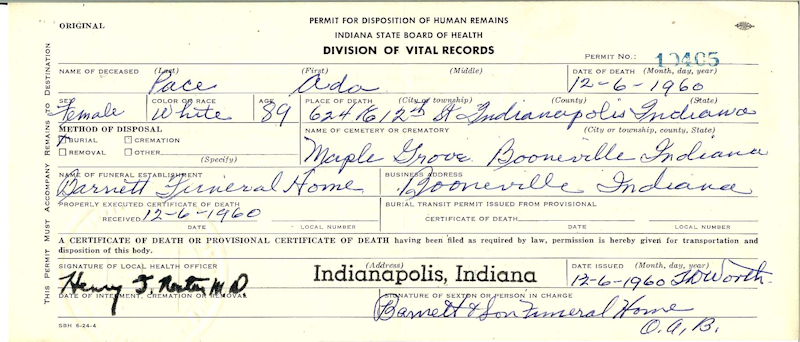 ORIGINAL
PERMIT FOR DISPOSITION OF HUMAN REMAINS
INDIANA STATE BOARD OF HEALTH
DIVISION OF VITAL RECORDS
PERMIT NO.: 10405
THIS PERMIT MUST ACCOMPANY REMAINS TO DESTINATION
NAME OF DECEASED (Last) (First) (Middle) DATE OF DEATH (Month, day, year)
Pace Ada 12-6-1960
SEX COLOR OR RACE AGE PLACE OF DEATH (City or township) (County) (State)
Female White 89 624 12th St Indianapolis Indiana
METHOD OF DISPOSAL NAME OF CEMETERY OR CREMATORY (City or township, county, State)
BURIAL CREMATION
REMOVAL OTHER (Specify)
Maple Grove Booneville Indiana
NAME OF FUNERAL ESTABLISHMENT BUSINESS ADDRESS
Barnett Funeral Home Booneville Indiana
PROPERLY EXECUTED CERTIFICATE OF DEATH BURIAL TRANSIT PERMIT ISSUED FROM PROVISIONAL
RECEIVED 12-6-1960 CERTIFICATE OF DEATH
DATE LOCAL NUMBER DATE LOCAL NUMBER
A CERTIFICATE OF DEATH OR PROVISIONAL CERTIFICATE OF DEATH having been filed as required by law, permission is hereby given for transportation and
disposition of this body.
SIGNATURE OF LOCAL HEALTH OFFICER (Address) DATE ISSUED (Month, day, year)
Henry G. M.D. Indianapolis, Indiana 12-6-1960
DATE OF INTERMENT, CREMATION OR REMOVAL SIGNATURE OF SEXTON OR PERSON IN CHARGE
Barnett & Son Funeral Home
O.A.B.
SBH 6-24-4